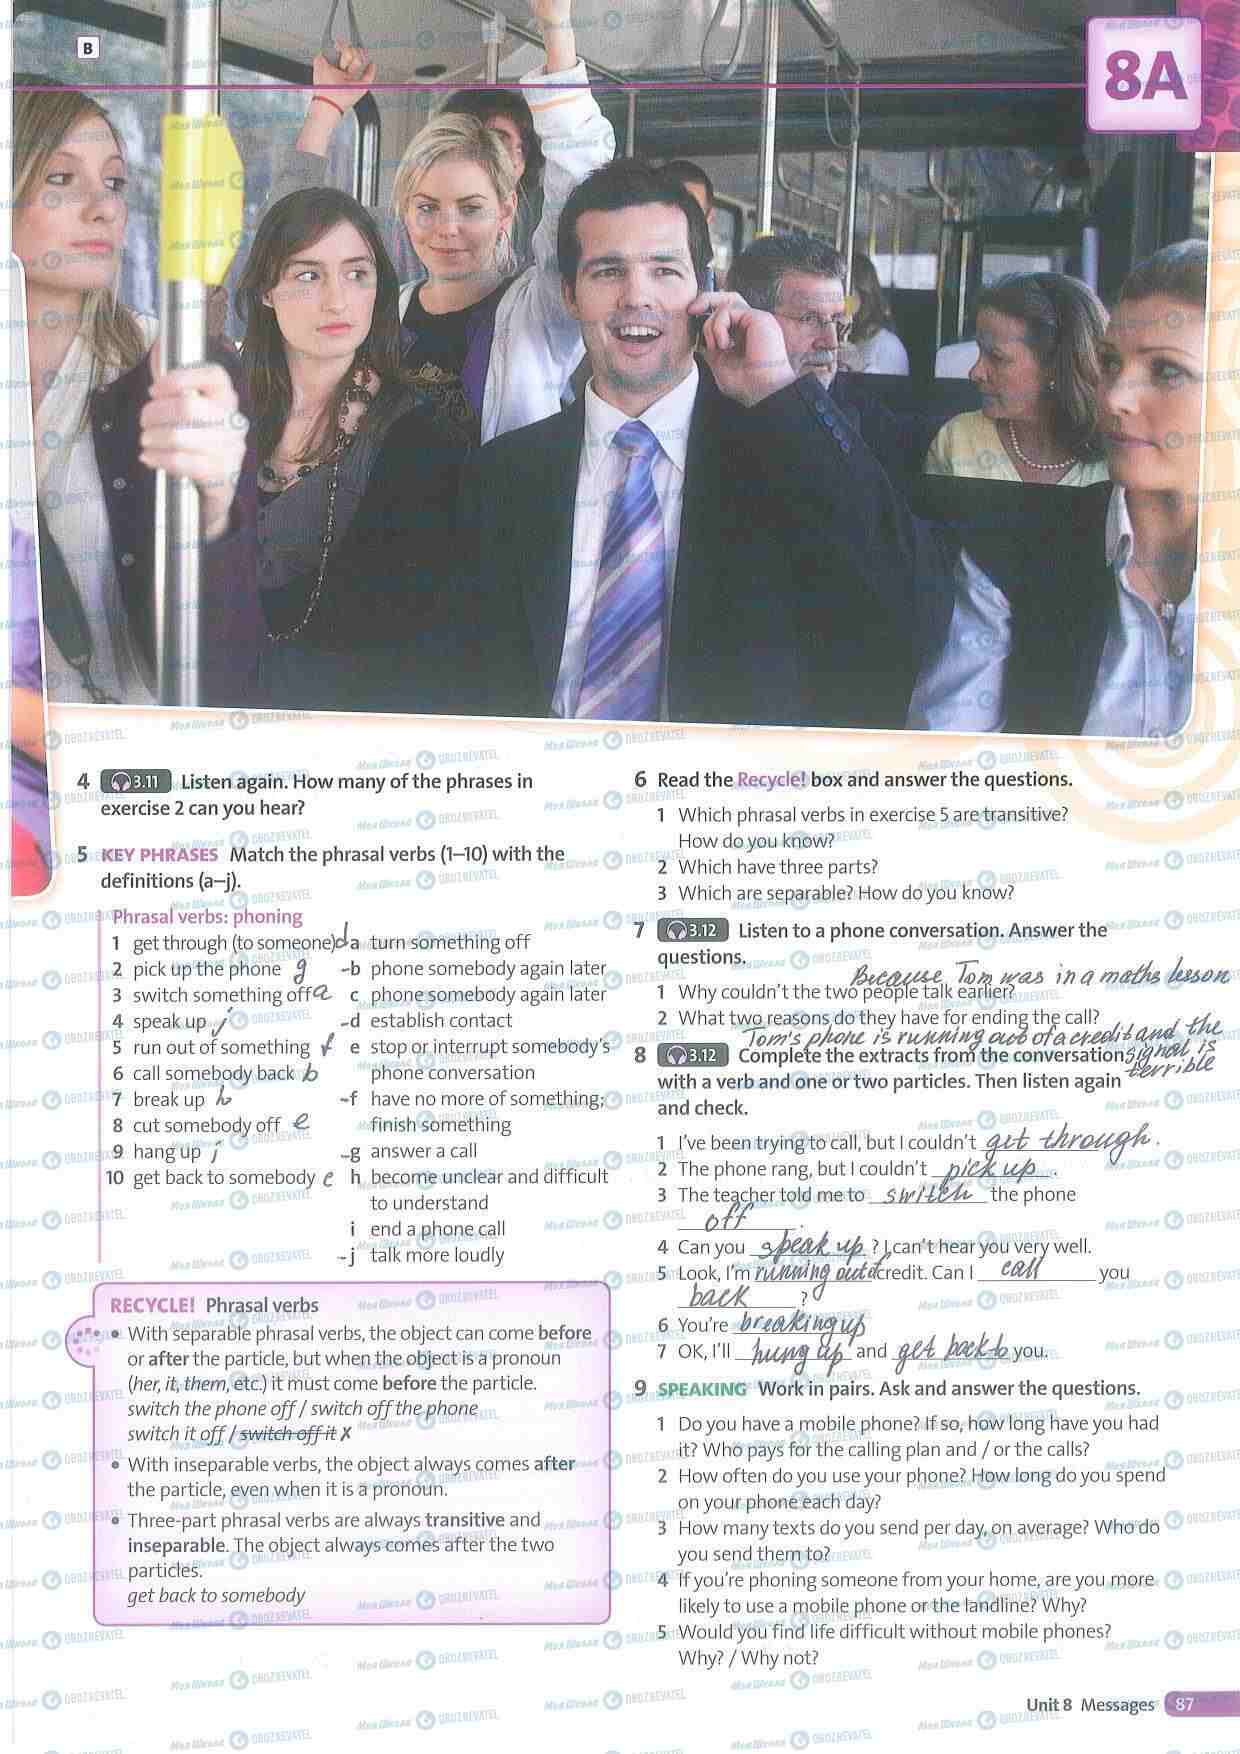 B
8A
4 3.11 Listen again. How many of the phrases in
exercise 2 can you hear?
5 KEY PHRASES Match the phrasal verbs (1–10) with the
definitions (a–j).
Phrasal verbs: phoning
1 get through (to someone) d
2 pick up the phone g
3 switch something off a
4 speak up j
5 run out of something f
6 call somebody back b
7 break up h
8 cut somebody off e
9 hang up j
10 get back to somebody c
a turn something off
b phone somebody again later
c phone somebody again later
d establish contact
e stop or interrupt somebody's
phone conversation
f have no more of something;
finish something
g answer a call
h become unclear and difficult
to understand
i end a phone call
j talk more loudly
RECYCLE! Phrasal verbs
• With separable phrasal verbs, the object can come before
or after the particle, but when the object is a pronoun
(her, it, them, etc.) it must come before the particle.
switch the phone off / switch off the phone
switch it off / switch off it ✗
• With inseparable verbs, the object always comes after
the particle, even when it is a pronoun.
• Three-part phrasal verbs are always transitive and
inseparable. The object always comes after the two
particles.
get back to somebody
6 Read the Recycle! box and answer the questions.
1 Which phrasal verbs in exercise 5 are transitive?
How do you know?
2 Which have three parts?
3 Which are separable? How do you know?
7 3.12 Listen to a phone conversation. Answer the
questions.
Because Tom was in a maths lesson
1 Why couldn't the two people talk earlier?
2 What two reasons do they have for ending the call?
Tom's phone is running out of a credit and the
signal is
terrible
8 3.12 Complete the extracts from the conversation
with a verb and one or two particles. Then listen again
and check.
1 I've been trying to call, but I couldn't get through.
2 The phone rang, but I couldn't pick up.
3 The teacher told me to switch the phone
off.
4 Can you speak up? I can't hear you very well.
5 Look, I'm running out of credit. Can I call you
back?
6 You're breaking up
7 OK, I'll hung up and get back to you.
9 SPEAKING Work in pairs. Ask and answer the questions.
1 Do you have a mobile phone? If so, how long have you had
it? Who pays for the calling plan and / or the calls?
2 How often do you use your phone? How long do you spend
on your phone each day?
3 How many texts do you send per day, on average? Who do
you send them to?
4 If you're phoning someone from your home, are you more
likely to use a mobile phone or the landline? Why?
5 Would you find life difficult without mobile phones?
Why? / Why not?
Unit 8 Messages 87
Моя Школа OBOZREVATEL